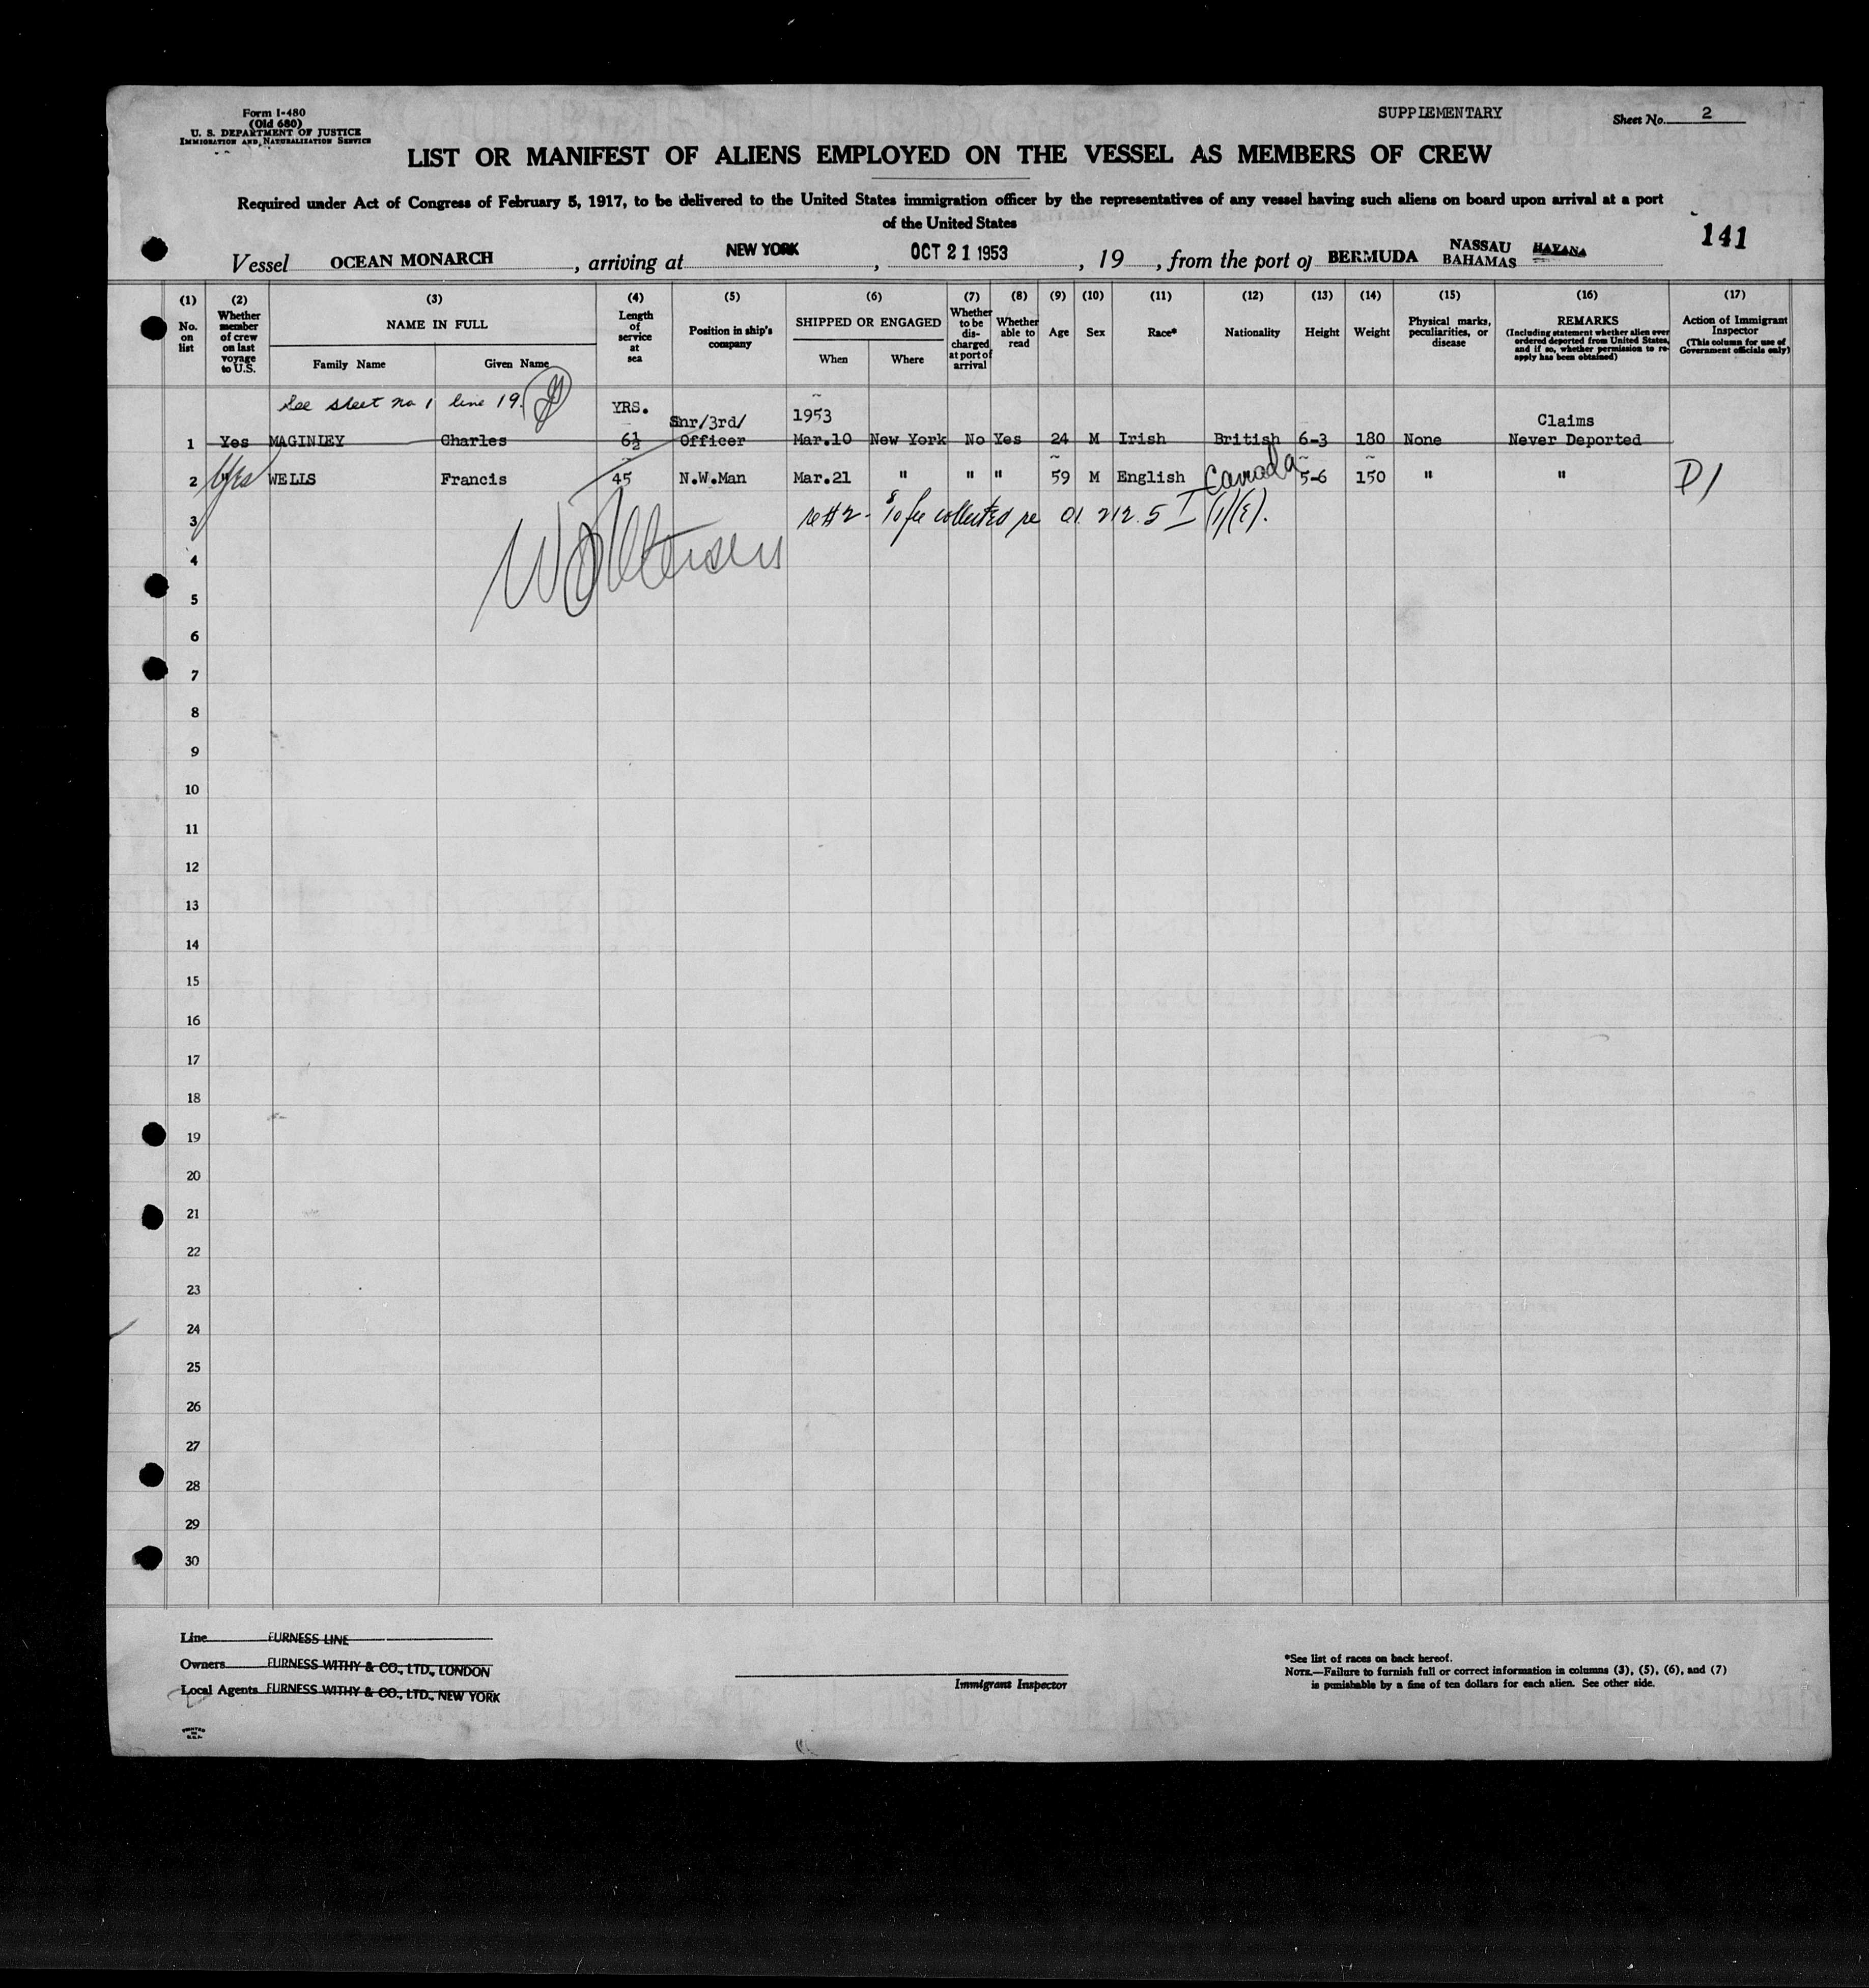 Form I-480
(Old 680)
U. S. DEPARTMENT OF JUSTICE
IMMIGRATION AND NATURALIZATION SERVICE
SUPPLEMENTARY
Sheet No. 2
LIST OR MANIFEST OF ALIENS EMPLOYED ON THE VESSEL AS MEMBERS OF CREW
Required under Act of Congress of February 5, 1917, to be delivered to the United States immigration officer by the representatives of any vessel having such aliens on board upon arrival at a port
of the United States
141
Vessel OCEAN MONARCH, arriving at NEW YORK, OCT 21 1953, 19 , from the port of BERMUDA NASSAU BAHAMAS HAVANA
(1) No. on list
(2) Whether member of crew on last voyage to U.S.
(3) NAME IN FULL
Family Name Given Name
(4) Length of service at sea
(5) Position in ship's company
(6) SHIPPED OR ENGAGED
When Where
(7) Whether to be discharged at port of arrival
(8) Whether able to read
(9) Age
(10) Sex
(11) Race*
(12) Nationality
(13) Height
(14) Weight
(15) Physical marks, peculiarities, or disease
(16) REMARKS
(Including statement whether alien ever ordered deported from United States, and if so, whether permission to re-apply has been obtained)
(17) Action of Immigrant Inspector
(This column for use of Government officials only)
See sheet no 1 line 19.
YRS. Snr/3rd/ 1953 Claims
1 Yes MAGINLEY Charles 6½ Officer Mar.10 New York No Yes 24 M Irish British 6-3 180 None Never Deported
2 " Yes WELLS Francis 45 N.W.Man Mar.21 " " " 59 M English Canada 5-6 150 " " D1
3 re #2 - $10 fee collected re 212.5
4
5
6
7
8
9
10
11
12
13
14
15
16
17
18
19
20
21
22
23
24
25
26
27
28
29
30
Line FURNESS LINE
Owners FURNESS WITHY & CO., LTD., LONDON
Local Agents FURNESS WITHY & CO., LTD., NEW YORK
Immigrant Inspector
*See list of races on back hereof.
NOTE.—Failure to furnish full or correct information in columns (3), (5), (6), and (7)
is punishable by a fine of ten dollars for each alien. See other side.
PRINTED IN U.S.A.